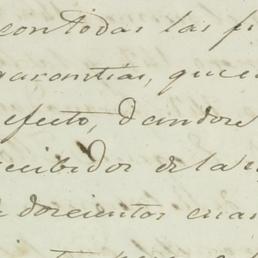 con todas las
garantias, que
efecto, dandose
recibidor de la
doscientos